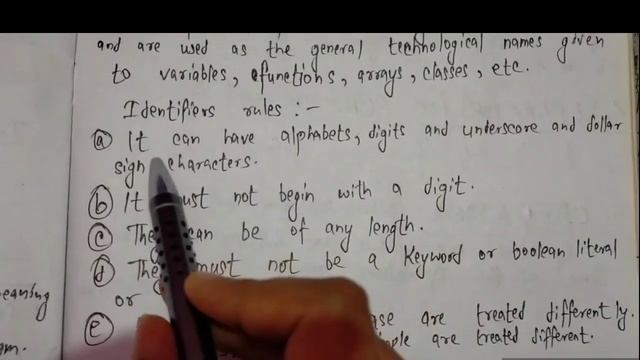 and are used as the general technological names given
to variables, functions, arrays, classes, etc.
Identifiers rules :-
(a) It can have alphabets, digits and underscore and dollar
sign characters.
(b) It must not begin with a digit.
(c) They can be of any length.
(d) They must not be a keyword or boolean literal
or
(e) are treated differently.
are treated different.
eaning